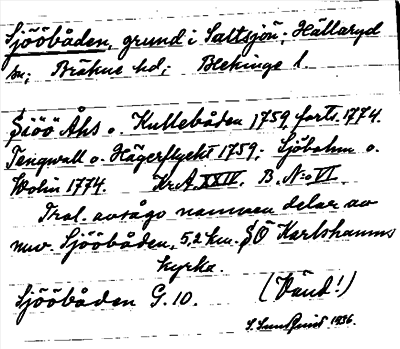 Sjööbåden, grund i Saltsjön; Hällaryd
sn; Bräkne hd; Blekinge l.
Siöö Åhs o. Kullebåden 1759, forts. 1774.
Tengwall o. Hägerflycht 1759; Sjöbohm o.
Wolin 1774. Kr.A. XXIV. B. N:o VI
Trol. avsågo namnen delar av
nuv. Sjööbåden, 5,2 km. SÖ Karlshamns
kyrka.
Sjööbåden G. 10. (Vänd!)
S. Sundquist 1936.